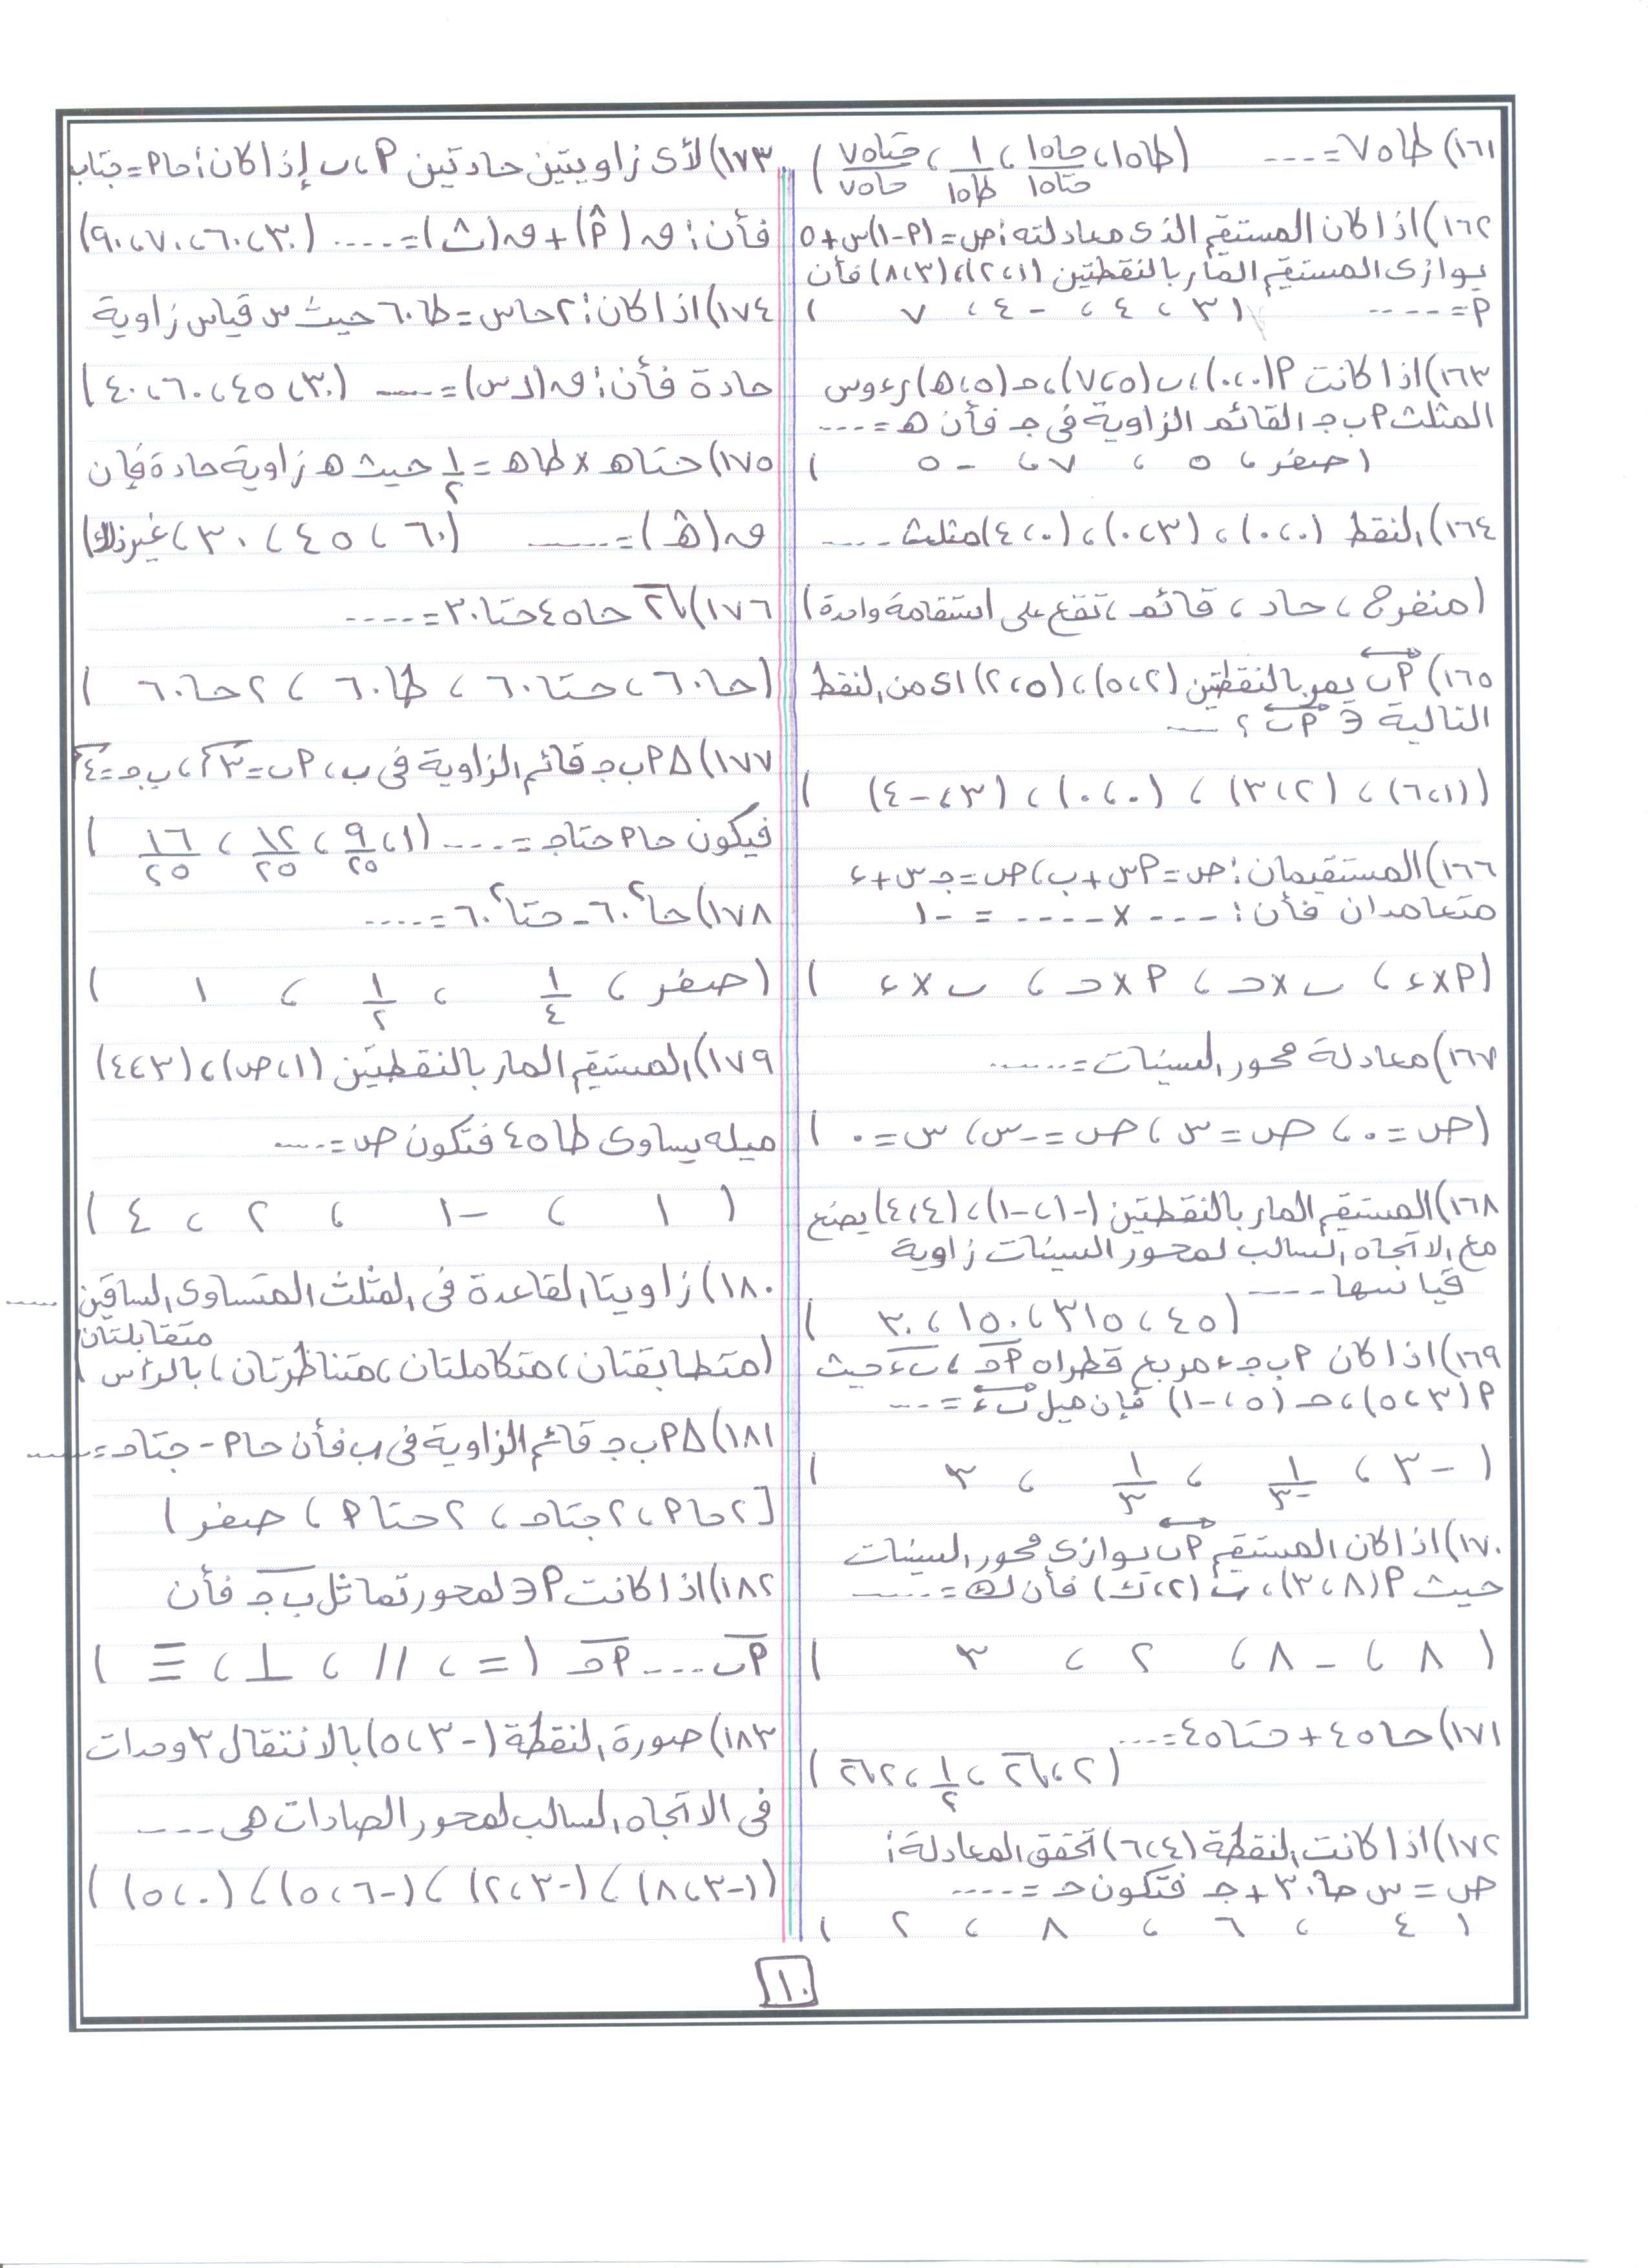 ١٦١) طا٧٥ = ---- (طا١٥ ، حا١٥/حتا١٥ ، ١/طا١٥ ، حتا٧٥/حا٧٥)
١٦٢) اذا كان المستقيم الذى معادلته : ص = (٢-١)س + ٥
يوازى المستقيم المار بالنقطتين (١،٢) ، (٣،٨) فأن
٢ = ---- (٣ ، ٤ ، -٤ ، ٧)
١٦٣) اذا كانت ٢(٠،٠) ، ب(٧،٥) ، حـ(٥،هـ) رءوس
المثلث ٢ب جـ القائم الزاوية فى جـ فأن هـ = ----
(صفر ، ٥ ، ٧ ، -٥)
١٦٤) النقط (٠،٠) ، (٠،٣) ، (٤،٠) مثلث ----
(منفرج ، حاد ، قائم ، تقع على استقامة واحدة)
١٦٥) ٢ب يمر بالنقطتين (٥،٢) ، (٢،٥) اى من النقط
التالية ∋ ٢ب ؟ ----
((٦،١) ، (٣،٢) ، (٠،٠) ، (٣،-٤))
١٦٦) المستقيمان : ص = ٢س + ب ، ص = جـ س + ء
متعامدان فأن : ---- × ---- = -١
(٢×ء ، ب×حـ ، ٢×حـ ، ب×ء)
١٦٧) معادلة محور السينات = ------
(ص = ٠ ، ص = س ، ص = -س ، س = ٠)
١٦٨) المستقيم المار بالنقطتين (-١،-١) ، (٤،٤) يصنع
مع الاتجاه السالب لمحور السينات زاوية
قياسها ----
(٤٥ ، ٣١٥ ، ١٥٠ ، ٣٠)
١٦٩) اذا كان ٢ب جـ ء مربع قطراه ٢حـ ، بء حيث
٢(٥،٣) ، حـ(٥،-١) فإن ميل بء = ----
(-٣ ، ١/-٣ ، ١/٣ ، ٣)
١٧٠) اذا كان المستقيم ٢ب يوازى محور السينات
حيث ٢(٣،٨) ، ب(٢،ك) فأن ك = ----
(٨ ، -٨ ، ٢ ، ٣)
١٧١) حا٤٥ + حتا٤٥ = ----
(٢ ، √٢ ، ١/٢ ، ٢√٢)
١٧٢) اذا كانت النقطة (٦،٤) تحقق المعادلة :
ص = س حا٣٠ + جـ فتكون حـ = ----
(٤ ، ٦ ، ٨ ، ٢)
١٧٣) لأى زاويتين حادتين ٢، ب إذا كان : حا٢ = جتاب
فأن : ق(٢) + ق(ب) = ---- (٣٠ ، ٦٠ ، ٧٠ ، ٩٠)
١٧٤) اذا كان : ٢حاس = طا٦٠ حيث س قياس زاوية
حادة فأن : ق(س) = ---- (٣٠ ، ٤٥ ، ٦٠ ، ٤٠)
١٧٥) حتاهـ × طاهـ = ١/٢ حيث هـ زاوية حادة فإن
ق(هـ) = ---- (٦٠ ، ٤٥ ، ٣٠ ، غير ذلك)
١٧٦) √٢ حا٤٥ حتا٣٠ = ----
(حا٦٠ ، حتا٦٠ ، طا٦٠ ، ٢حا٦٠)
١٧٧) ∆٢ب جـ قائم الزاوية فى ب ، ٢ب = ٣ ، ب جـ = ٤
فيكون حا٢ حتاجـ = ---- (١ ، ٩/٢٥ ، ١٢/٢٥ ، ١٦/٢٥)
١٧٨) حا²٦٠ - حتا²٦٠ = ----
(صفر ، ١/٤ ، ١/٢ ، ١)
١٧٩) المستقيم المار بالنقطتين (١،ص) ، (٤،٣)
ميله يساوى طا٤٥ فتكون ص = ----
(١ ، -١ ، ٢ ، ٤)
١٨٠) زاويتا القاعدة فى المثلث المتساوى الساقين ----
(متطابقتان ، متكاملتان ، متناظرتان ، متقابلتان بالرأس)
١٨١) ∆٢ب جـ قائم الزاوية فى ب فأن حا٢ - جتاحـ = ----
[٢حا٢ ، ٢جتاحـ ، ٢حتا٢ ، صفر)
١٨٢) اذا كانت ٢ ∋ لمحور تماثل ب جـ فأن
٢ب ---- ٢حـ (= ، // ، ⊥ ، ≡)
١٨٣) صورة النقطة (-٥،٣) بالانتقال ٣ وحدات
فى الاتجاه السالب لمحور الصادات هى ----
((-٨،٣) ، (-٢،٣) ، (-٥،٦) ، (٥،٠))
١٠